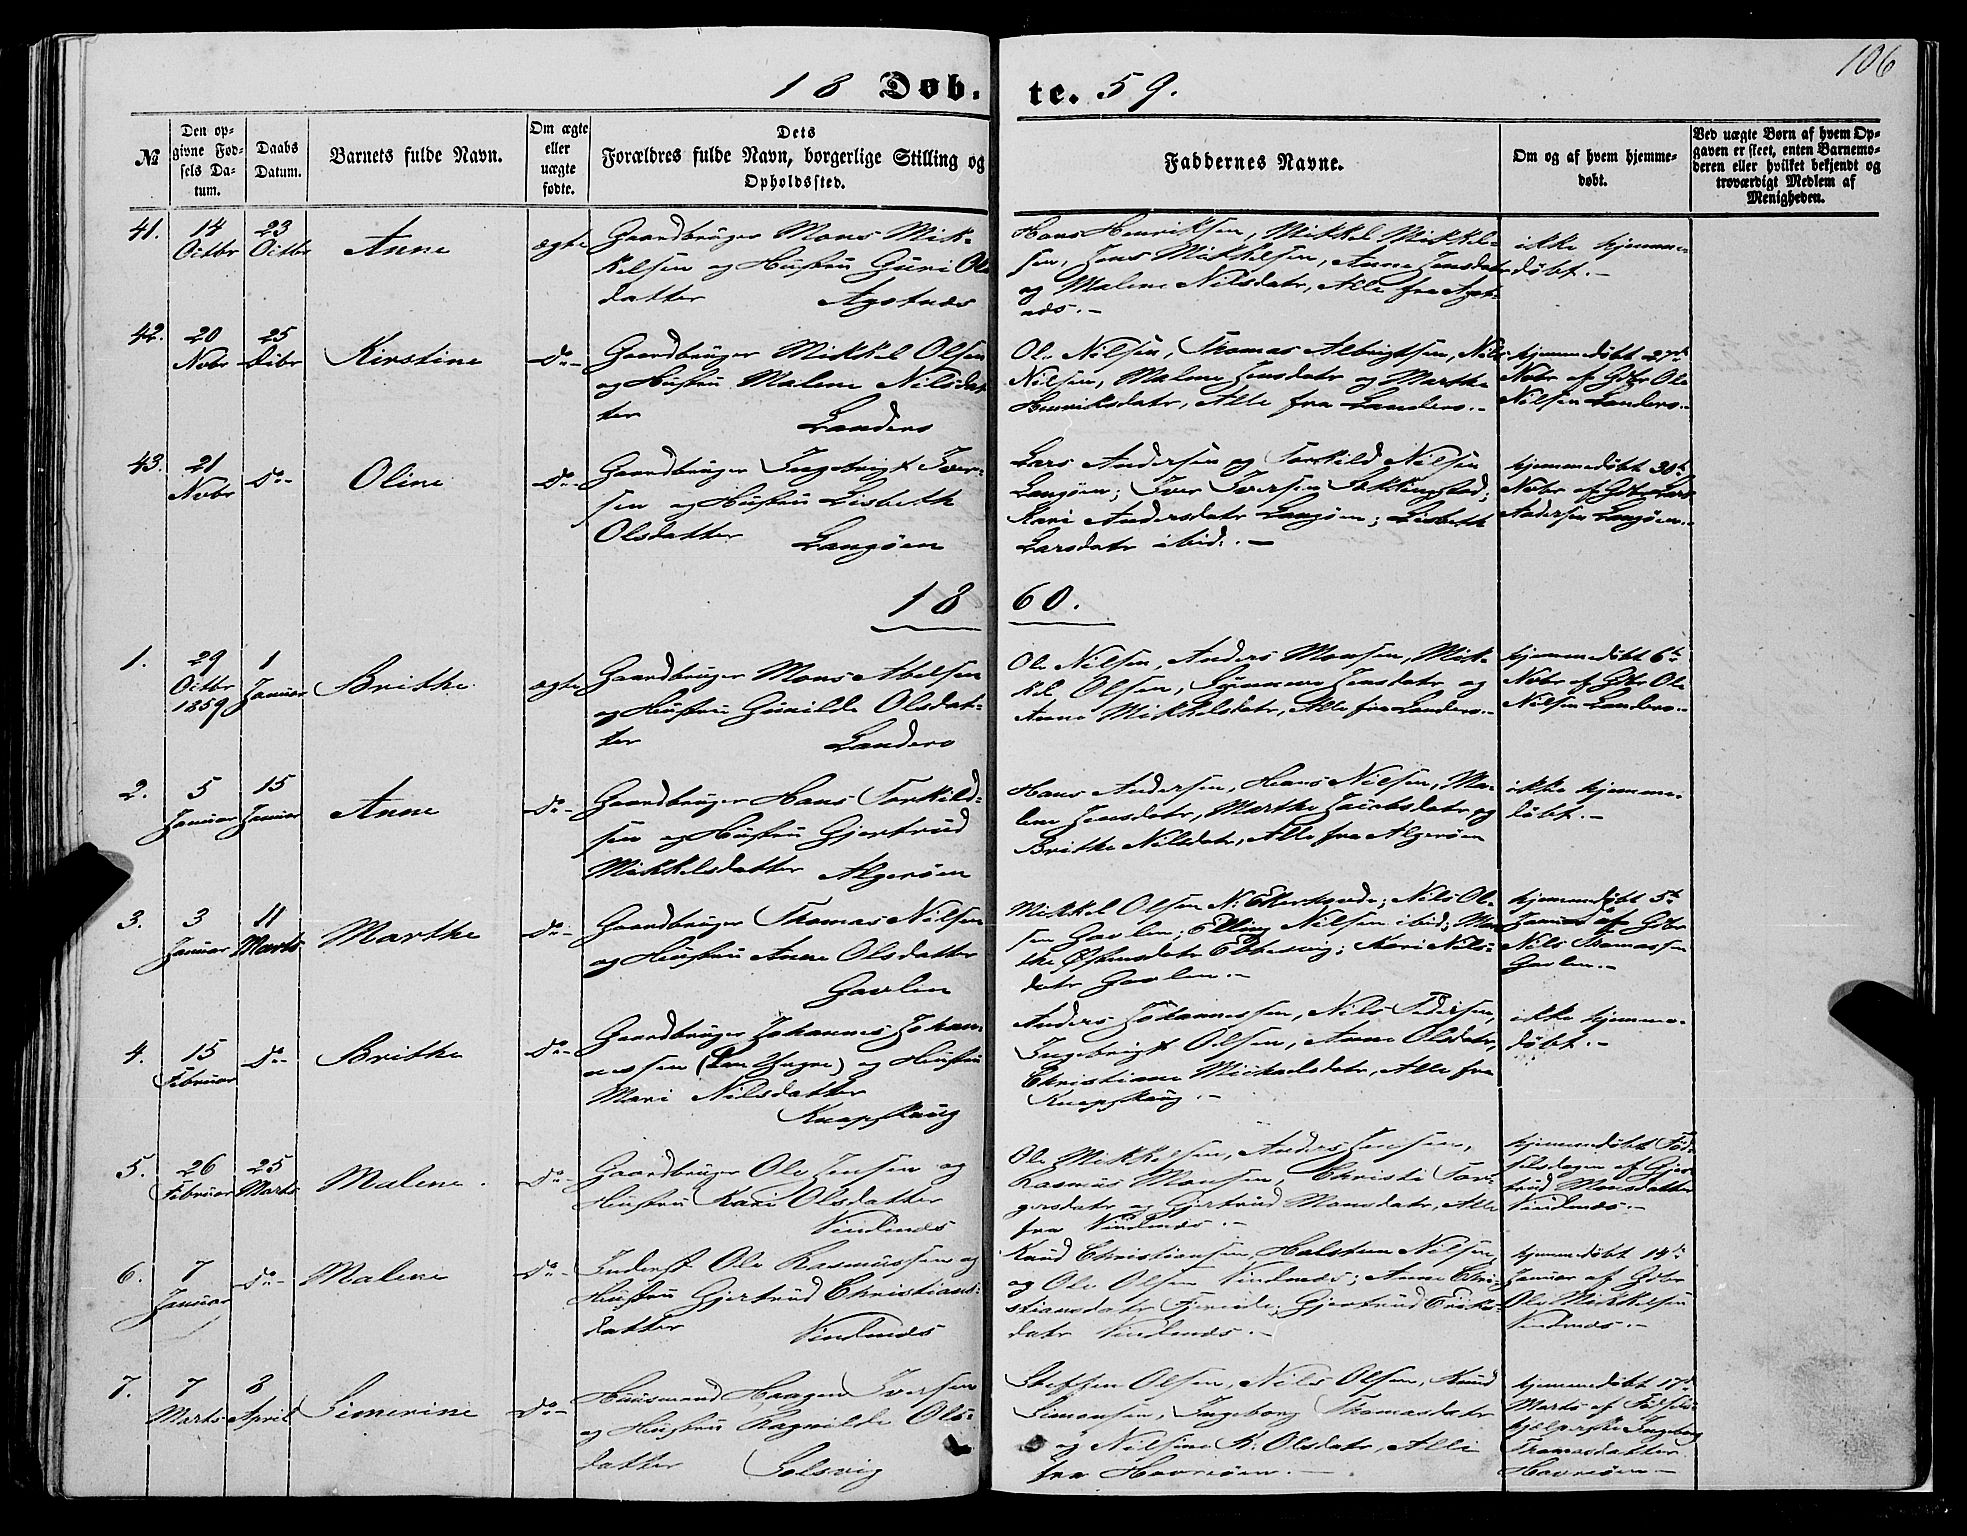 106
18 Døb. te. 59.
№
Den op-
givne Fød-
sels Da-
tum.
Daabs
Datum.
Barnets fulde Navn.
Om ægte
eller
uægte
fødte.
Dets
Forældres fulde Navn, borgerlige Stilling og
Opholdssted.
Faddernes Navne.
Om og af hvem hjemme-
døbt.
Ved uægte Børn af hvem Op-
gaven er skeet, enten Barnemo-
deren eller hvilket bekjendt og
troværdigt Medlem af
Menigheden.
41.
14
Octbr
23
Octbr
Anne
ægte
Gaardbruger Mons Mik-
kelsen og Hustru Guri Ols
datter Agotnæs
Hans Henriksen, Mikkel Mikkel-
sen, Jens Mikkelsen, Anne Jensdatr
og Malene Nilsdatr, Alle fra Agot-
næs.-
ikke hjemme-
døbt.-
42.
20
Nvbr
25
Dcbr
Kirstine
Do-
Gaardbruger Mikkel Olsen
og Hustru Malene Nilsdat
ter
Landero
Ole Nilsen, Thomas Albrigtsen, Nils
Nilsen, Malene Jensdatr og Marthe
Henriksdatr, Alle fra Landero.-
hjemmedøbt 27de
Nvbr af Gbr Ole
Nilsen Landero.-
43.
21
Nvbr
Do-
Oline
Do-
Gaardbruger Ingebrigt Iver-
sen og Hustru Lisbeth
Olsdatter Langøen
Lars Andersen og Torkild Nilsen
Langøen; Iver Iversen Sekkingstad;
Kari Andersdatr Langøen; Lisbeth
Larsdatr ibid.-
hjemmedøbt 30te
Nvbr af Gbr Lars
Andersen Langøen.-
18 60.
1.
29
Octbr
1859
1
Januar
Brithe
ægte
Gaardbruger Mons Abelsen
og Hustru Gunilde Olsdat-
ter Landero
Ole Nilsen, Anders Monsen, Mik-
kel Olsen, Synneve Jensdatr og
Anne Mikkelsdatr, Alle fra Landero.-
hjemmedøbt 6te
Nvbr af Gbr Ole
Nilsen Landero.-
2.
5
Januar
15
Januar
Anne
Do-
Gaardbruger Hans Torkild-
sen og Hustru Gjertrud
Mikkelsdatter Algerøen
Hans Andersen, Hans Nilsen, Ma-
lene Jensdatr, Marthe Jacobsdatr og
Brithe Nilsdatr, Alle fra Algerøen
ikke hjemme-
døbt.-
3.
3
Januar
11
Marts
Marthe
Do-
Gaardbruger Thomas Nilsen
og Hustru Anne Olsdatter
Gavlen
Mikkel Olsen N: Ekerhovde; Nils Ol-
sen Gavlen; Elling Nilsen ibid; Mar
the Østensdatr Ebbesvig; Kari Nils-
datr Gavlen.-
hjemmedøbt 5te
Januar af Gbr
Nils Thomassen
Gavlen.-
4.
15
Februar
Do-
Brithe
Do-
Gaardbruger Johannes Johan-
nessen (den Yngre) og Hustru
Mari Nilsdatter
Knapskaug
Anders Johannessen, Nils Pedersen,
Ingebrigt Olsen, Anne Olsdatr,
Christiane Michaelsdatr, Alle fra
Knapskaug.-
ikke hjemme-
døbt.-
5.
26
Februar
25
Marts
Malene.
Do-
Gaardbruger Ole Jensen og
Hustru Kari Olsdatter
Vindenæs
Ole Mikkelsen, Anders Jensen,
Rasmus Monsen, Christi Tor-
gersdatr og Gjertrud Monsdatr, Alle
fra Vindenæs.-
hjemmedøbt Fød-
selsdagen af Gjer-
trud Monsdatter
Vindenæs.-
6.
7
Januar
Do-
Malene
Do-
Inderst Ole Rasmussen og
Hustru Gjertrud Christians-
datter Vindenæs
Knud Christiansen, Halsten Nilsen
og Ole Olsen Vindenæs; Anne Chri-
stiansdatr Fjereide; Gjertrud Eriks-
datr Vindenæs.-
hjemmedøbt 14de
Januar af Gbr
Ole Mikkelsen
Vindenæs.-
7.
7
Marts
8
April
Simerine
Do-
Huusmand Haagen Iversen
og Hustru Ragnilde Ols-
datter Solsvig
Steffen Olsen, Nils Olsen, Knud
Simonsen, Ingeborg Thomasdatr
og Nilsine K. Olsdatr, Alle
fra Havreøen.-
hjemmedøbt 17de
Marts af Fødsels-
hjælperske Ingeborg
Thomasdatter
Havreøen-